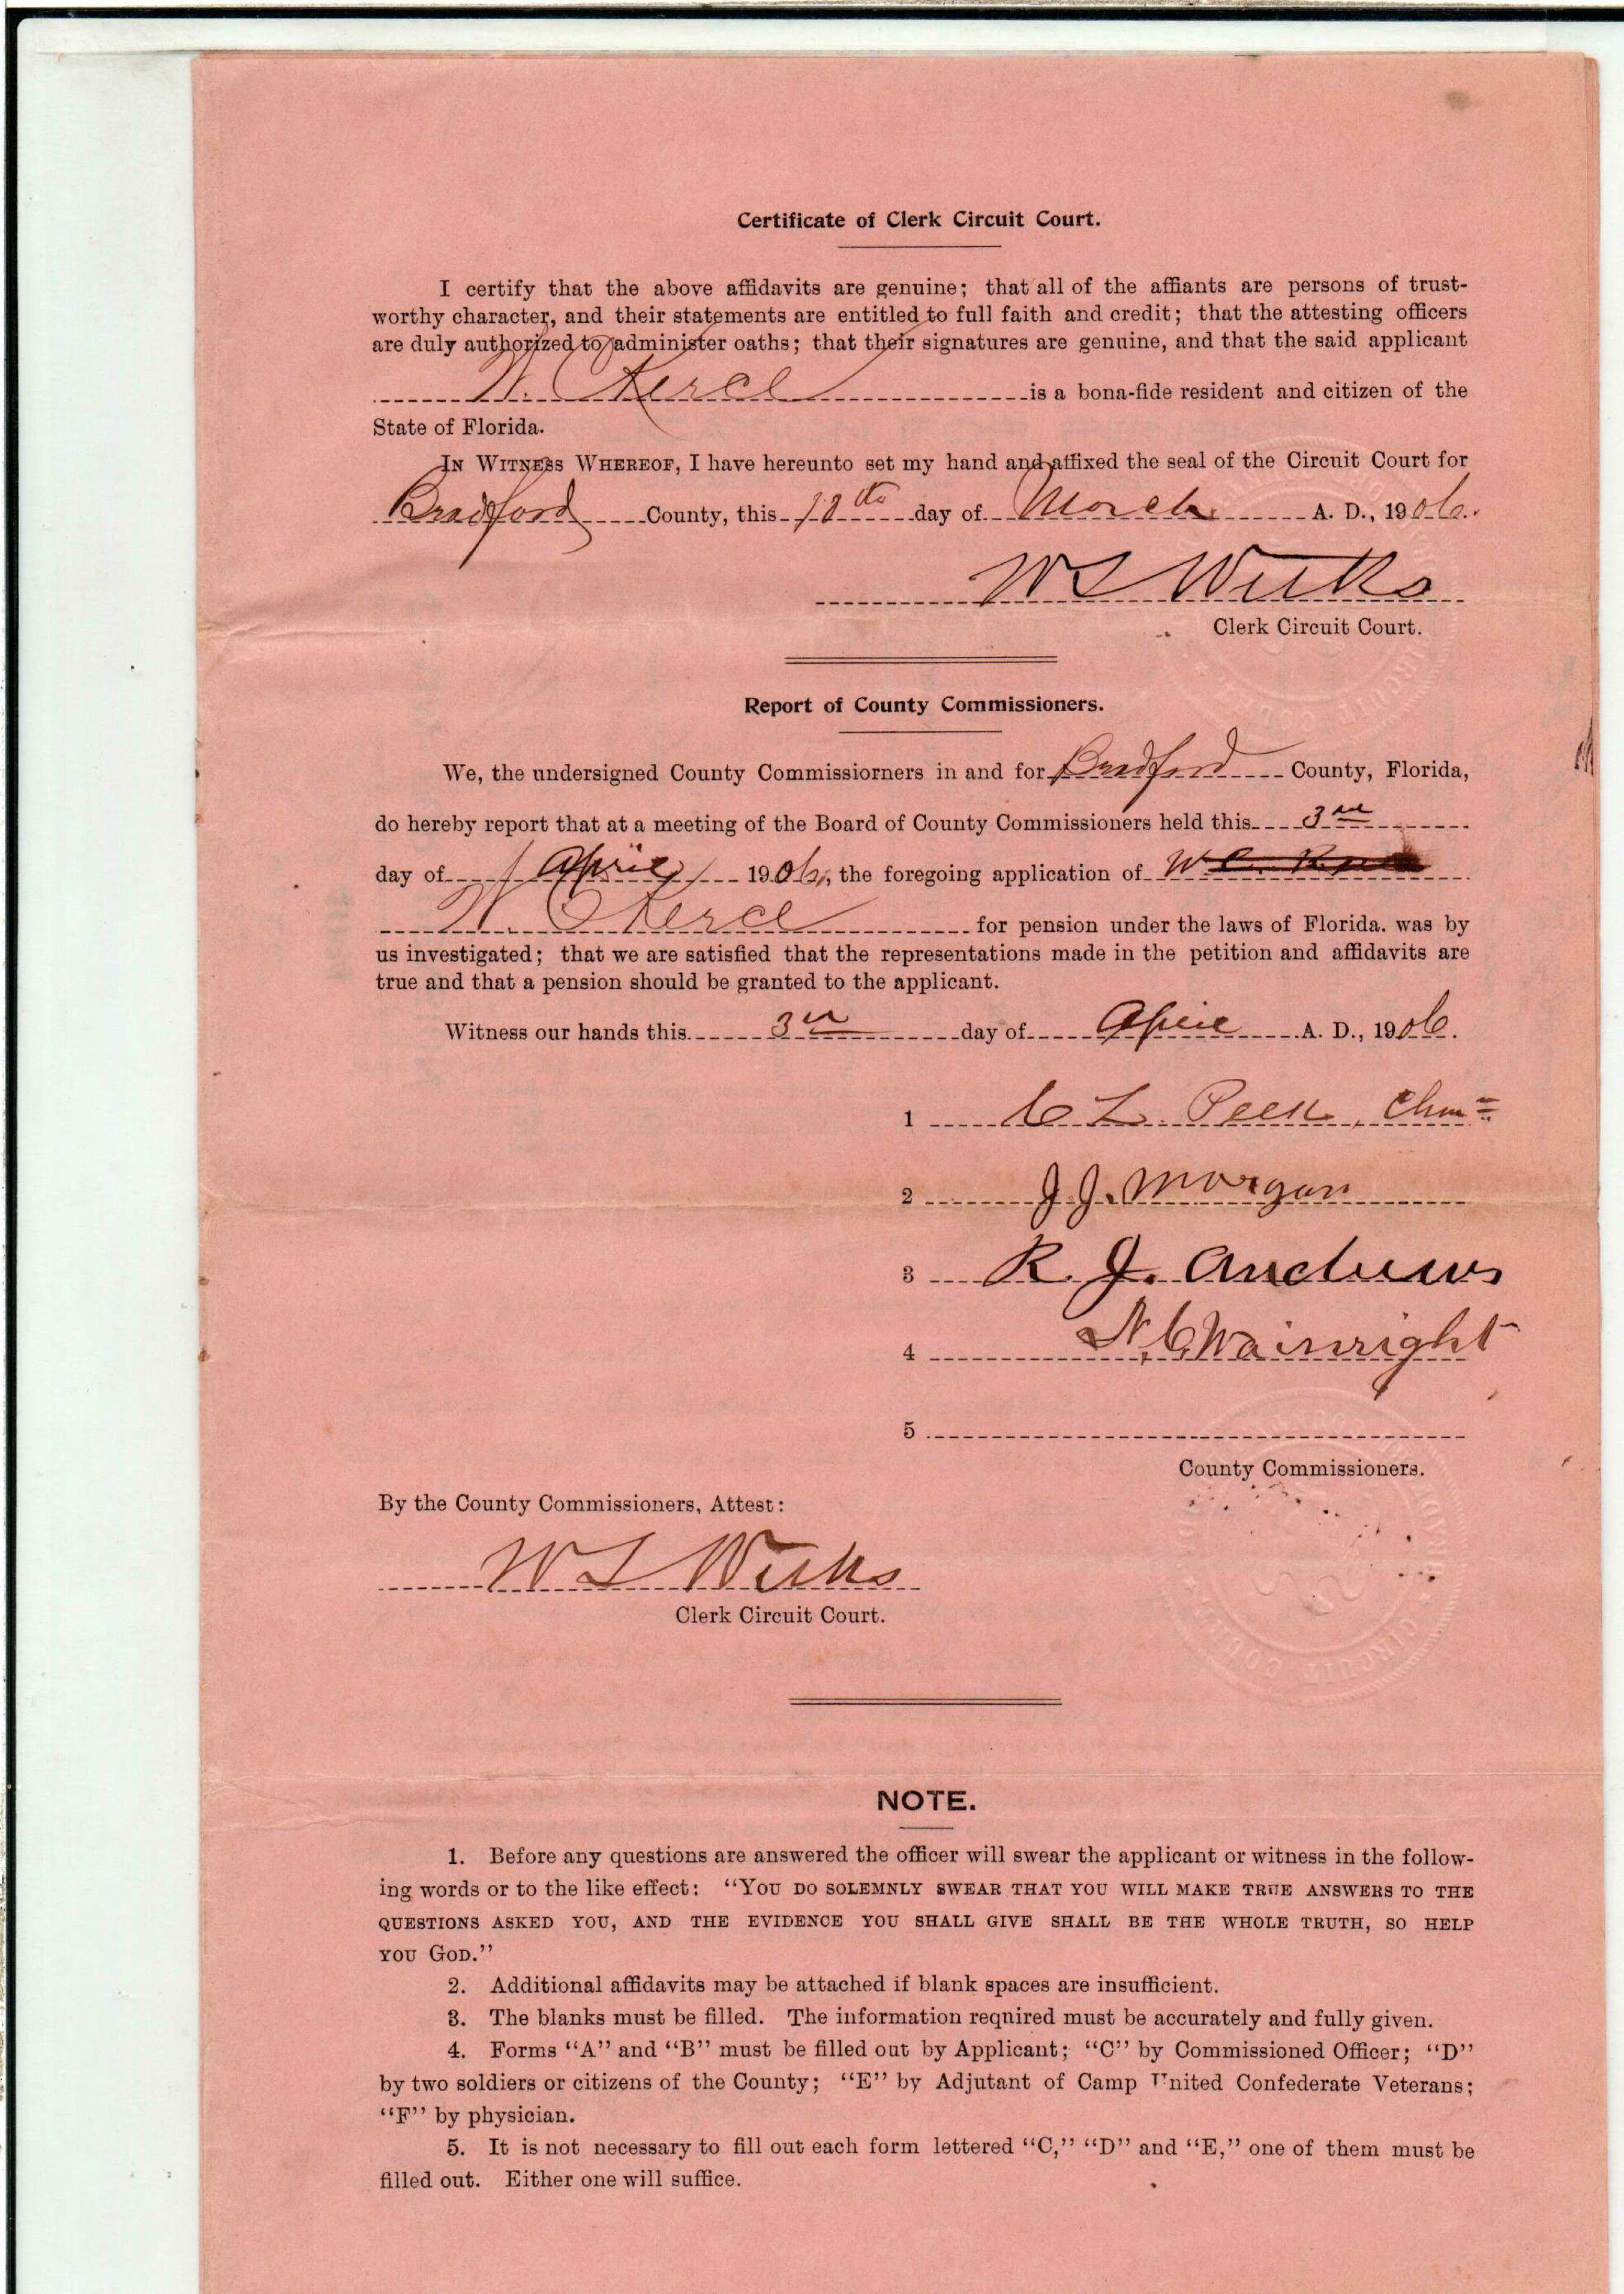 Certificate of Clerk Circuit Court.
I certify that the above affidavits are genuine; that all of the affiants are persons of trust-
worthy character, and their statements are entitled to full faith and credit; that the attesting officers
are duly authorized to administer oaths; that their signatures are genuine, and that the said applicant
W. C. is a bona-fide resident and citizen of the
State of Florida.
IN WITNESS WHEREOF, I have hereunto set my hand and affixed the seal of the Circuit Court for
Bradford County, this day of March A. D., 1906.
W L Weeks
Clerk Circuit Court.
Report of County Commissioners.
We, the undersigned County Commissiorners in and for Bradford County, Florida,
do hereby report that at a meeting of the Board of County Commissioners held this 3rd
day of April 1906, the foregoing application of W
W. C. for pension under the laws of Florida. was by
us investigated; that we are satisfied that the representations made in the petition and affidavits are
true and that a pension should be granted to the applicant.
Witness our hands this 3rd day of April A. D., 1906.
1 C L. Peek, Chmn
2 J. J. Morgan
3 R. J. Andrews
4 N. C. Wainright
5
County Commissioners.
By the County Commissioners, Attest:
W L Weeks
Clerk Circuit Court.
NOTE.
1. Before any questions are answered the officer will swear the applicant or witness in the follow-
ing words or to the like effect: "YOU DO SOLEMNLY SWEAR THAT YOU WILL MAKE TRUE ANSWERS TO THE
QUESTIONS ASKED YOU, AND THE EVIDENCE YOU SHALL GIVE SHALL BE THE WHOLE TRUTH, SO HELP
YOU GOD."
2. Additional affidavits may be attached if blank spaces are insufficient.
3. The blanks must be filled. The information required must be accurately and fully given.
4. Forms "A" and "B" must be filled out by Applicant; "C" by Commissioned Officer; "D"
by two soldiers or citizens of the County; "E" by Adjutant of Camp United Confederate Veterans;
"F" by physician.
5. It is not necessary to fill out each form lettered "C," "D" and "E," one of them must be
filled out. Either one will suffice.